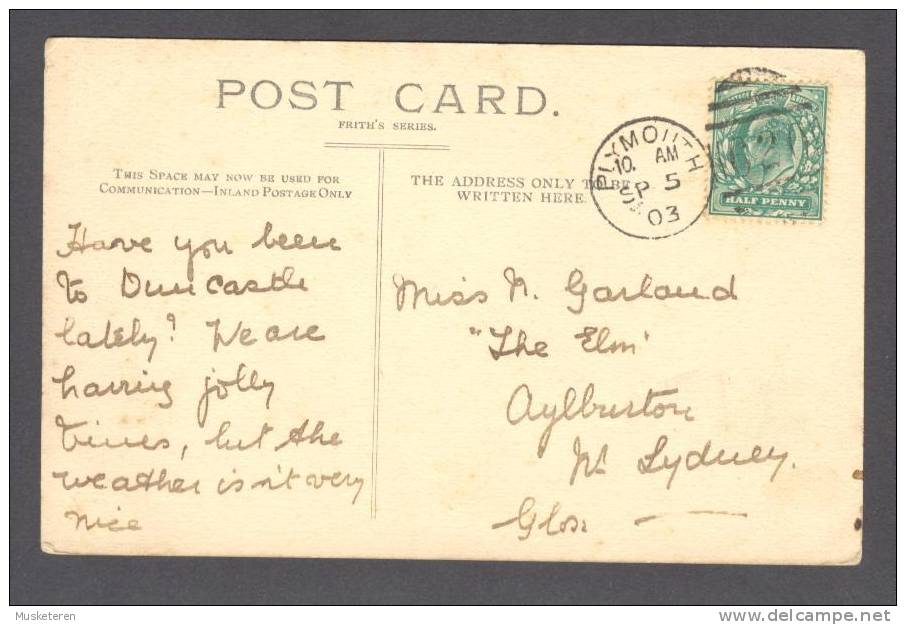 POST CARD.
FRITH'S SERIES.
THIS SPACE MAY NOW BE USED FOR
COMMUNICATION—INLAND POSTAGE ONLY
THE ADDRESS ONLY TO BE
WRITTEN HERE
PLYMOUTH
10. AM
SP 5
03
HALF PENNY
Have you been
to Duncastle
lately? We are
having jolly
times, but the
weather isn't very
nice
Miss N. Garland
"The Elm"
Aylburton
Nr Lydney.
Glos. —
Musketeren
www.delcampe.net